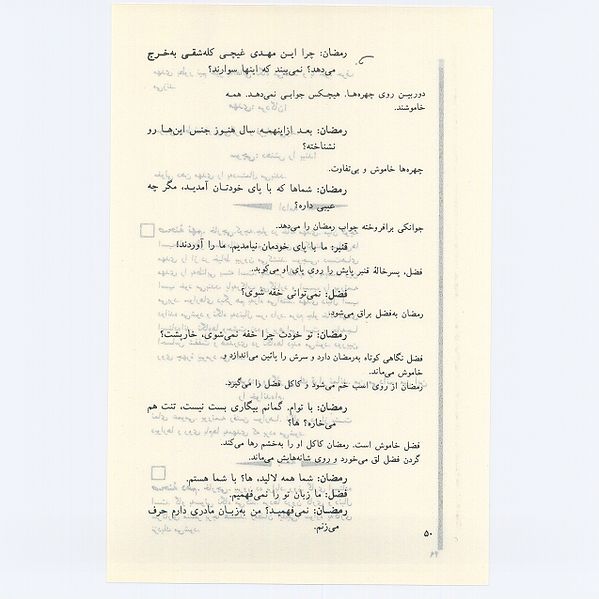 رمضان: چرا ایـن مهـدی غیچـی کله‌شقـی به‌خـرج
می‌دهد؟ نمی‌بیند که اینها سوارند؟
دوربیـن روی چهره‌هـا. هیچـکس جوابـی نمی‌دهـد. همـه
خاموشند.
رمضان: بعـد ازاینهمـه سال هنـوز جنس این‌هـا رو
نشناخته؟
چهره‌ها خاموش و بی‌تفاوت.
رمضان: شماها که با پای خودتـان آمدیـد، مگر چه
عیبی داره؟
جوانکی برافروخته جواب رمضان را می‌دهد.
قنبر: ما با پای خودمان نیامدیم. ما را آوردند!
فضل، پسرخالهٔ قنبر پایش را روی پای او می‌کوبد.
فضل: نمی‌توانی خفه شوی؟
رمضان به‌فضل براق می‌شود.
رمضان: تو خودت چرا خفه نمی‌شوی، خارپشت؟
فضل نگاهی کوتاه به‌رمضان دارد و سرش را پائین می‌اندازد و
خاموش می‌ماند.
رمضان از روی اسب خم می‌شود و کاکل فضل را می‌گیرد.
رمضان: با توام. گمانم بیگاری بست نیست، تنت هم
می‌خاره؟ ها؟
فضل خاموش است. رمضان کاکل او را به‌خشم رها می‌کند.
گردن فضل لق می‌خورد و روی شانه‌هایش می‌ماند.
رمضان: شما همه لالید، ها؟ با شما هستم.
فضل: ما زبان تو را نمی‌فهمیم.
رمضـان: نمی‌فهمید؟ من به‌زبـان مادری دارم حرف
می‌زنم.
۵۰